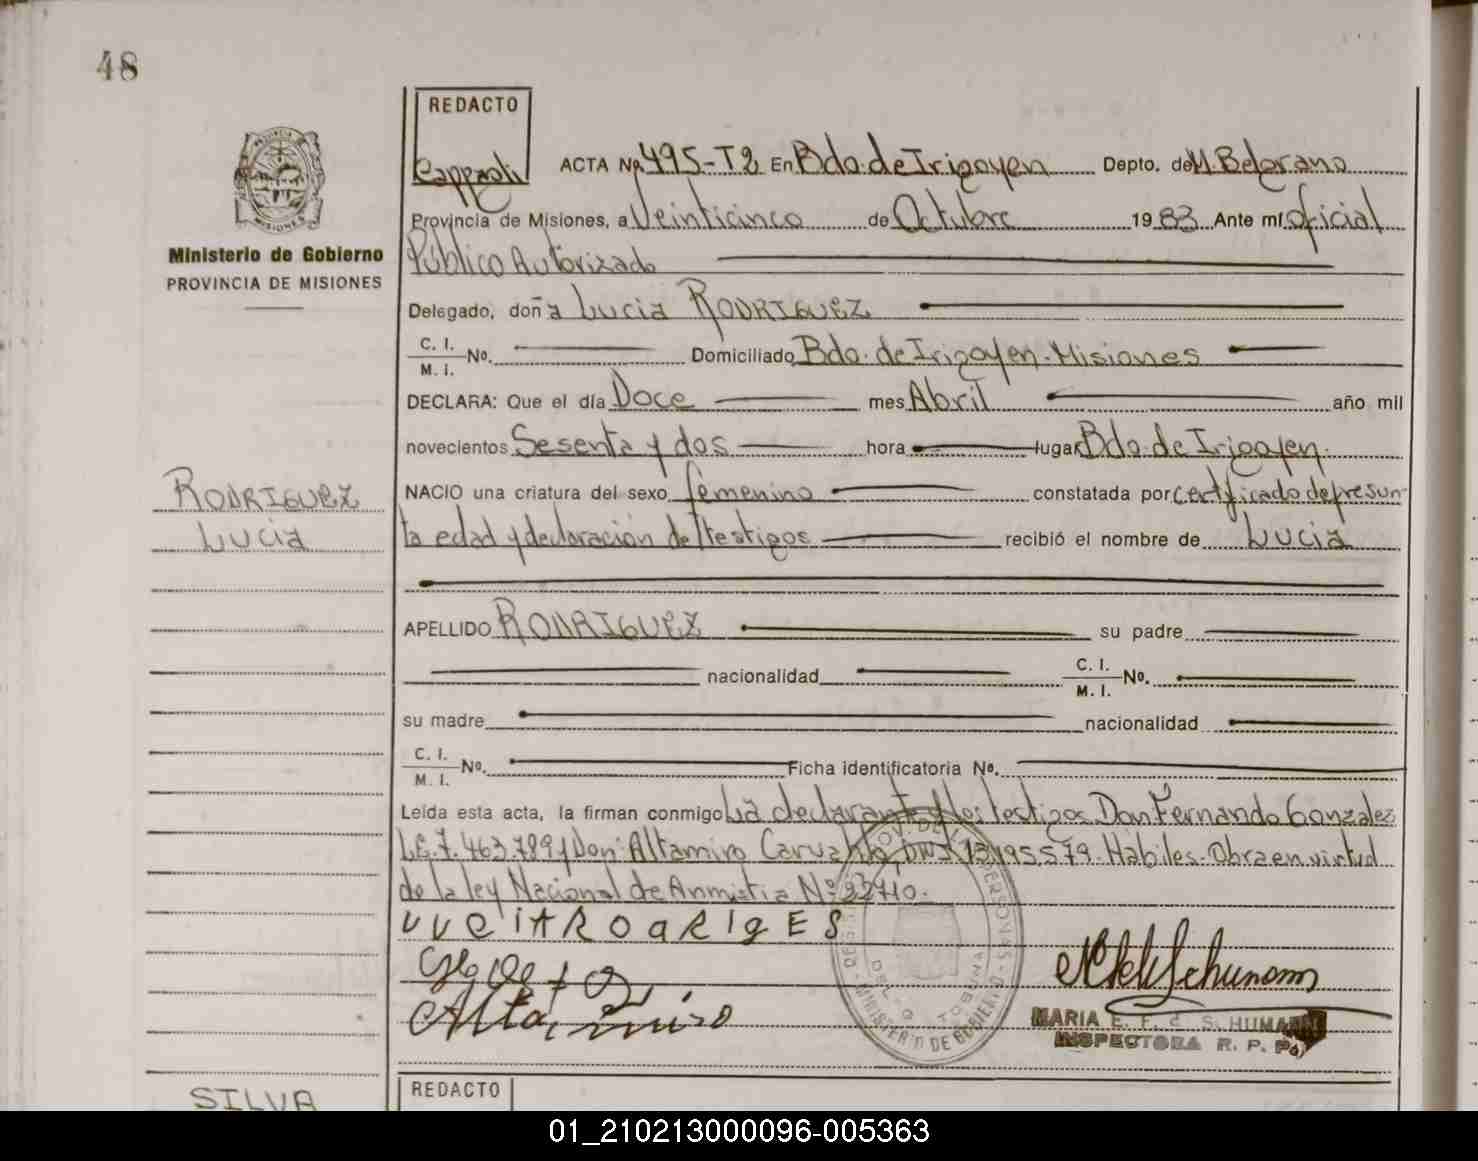 48
REDACTO
ACTA No 495-T2 En Bdo. de Irigoyen Depto. de M. Belgrano
Provincia de Misiones, a Veinticinco de Octubre 1983 Ante mí Oficial
Público Autorizado
Ministerio de Gobierno
PROVINCIA DE MISIONES
Delegado, doña Lucia RODRIGUEZ
C. I.
M. I. No. Domiciliado Bdo. de Irigoyen-Misiones
DECLARA: Que el día Doce mes Abril año mil
novecientos Sesenta y dos hora lugar Bdo. de Irigoyen.
RODRIGUEZ
Lucia
NACIO una criatura del sexo femenino constatada por certificado de presun
ta edad y declaración de testigos recibió el nombre de Lucia
APELLIDO RODRIGUEZ su padre
nacionalidad C. I.
M. I. No.
su madre nacionalidad
C. I.
M. I. No. Ficha identificatoria No.
Leída esta acta, la firman conmigo La declarante y los testigos Don Fernando Gonzalez
L.E. 7.463.789 y Don Altamiro Carvalho, DNI 13.195.579. Habiles. Obra en virtud
de la ley Nacional de Amnistia Nº 22.410.
Altamiro
MARIA E. F. d SCHUMANN
INSPECTORA R. P. P.
MINISTERIO DE GOBIERNO
SILVA
REDACTO
01_210213000096-005363